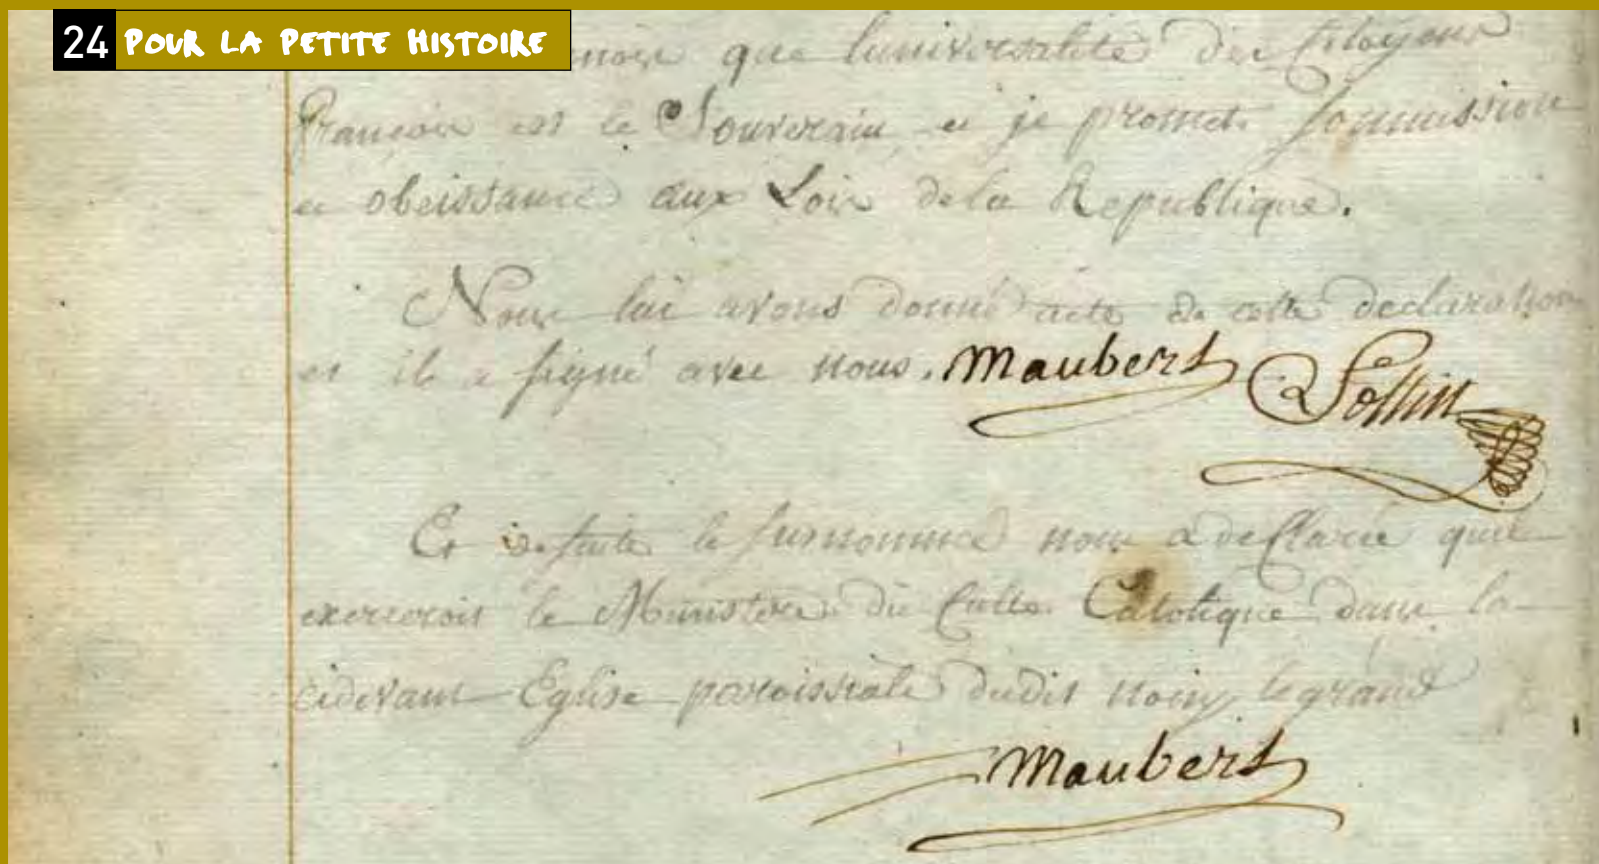 24 POUR LA PETITE HISTOIRE
que luniversalité des Citoyens
français est le Souverain, et je promets soumission
et obeissance aux Loix dela Republique.
Nous lui avons donné acte de cette declaration
et il a signé avec nous. Maubert
Et de suite le surnommé nous a declaré quil
exerceroit le Ministere du Culte Catolique dans la
cidevant Eglise paroissiale dudit noisy legrand
Maubert